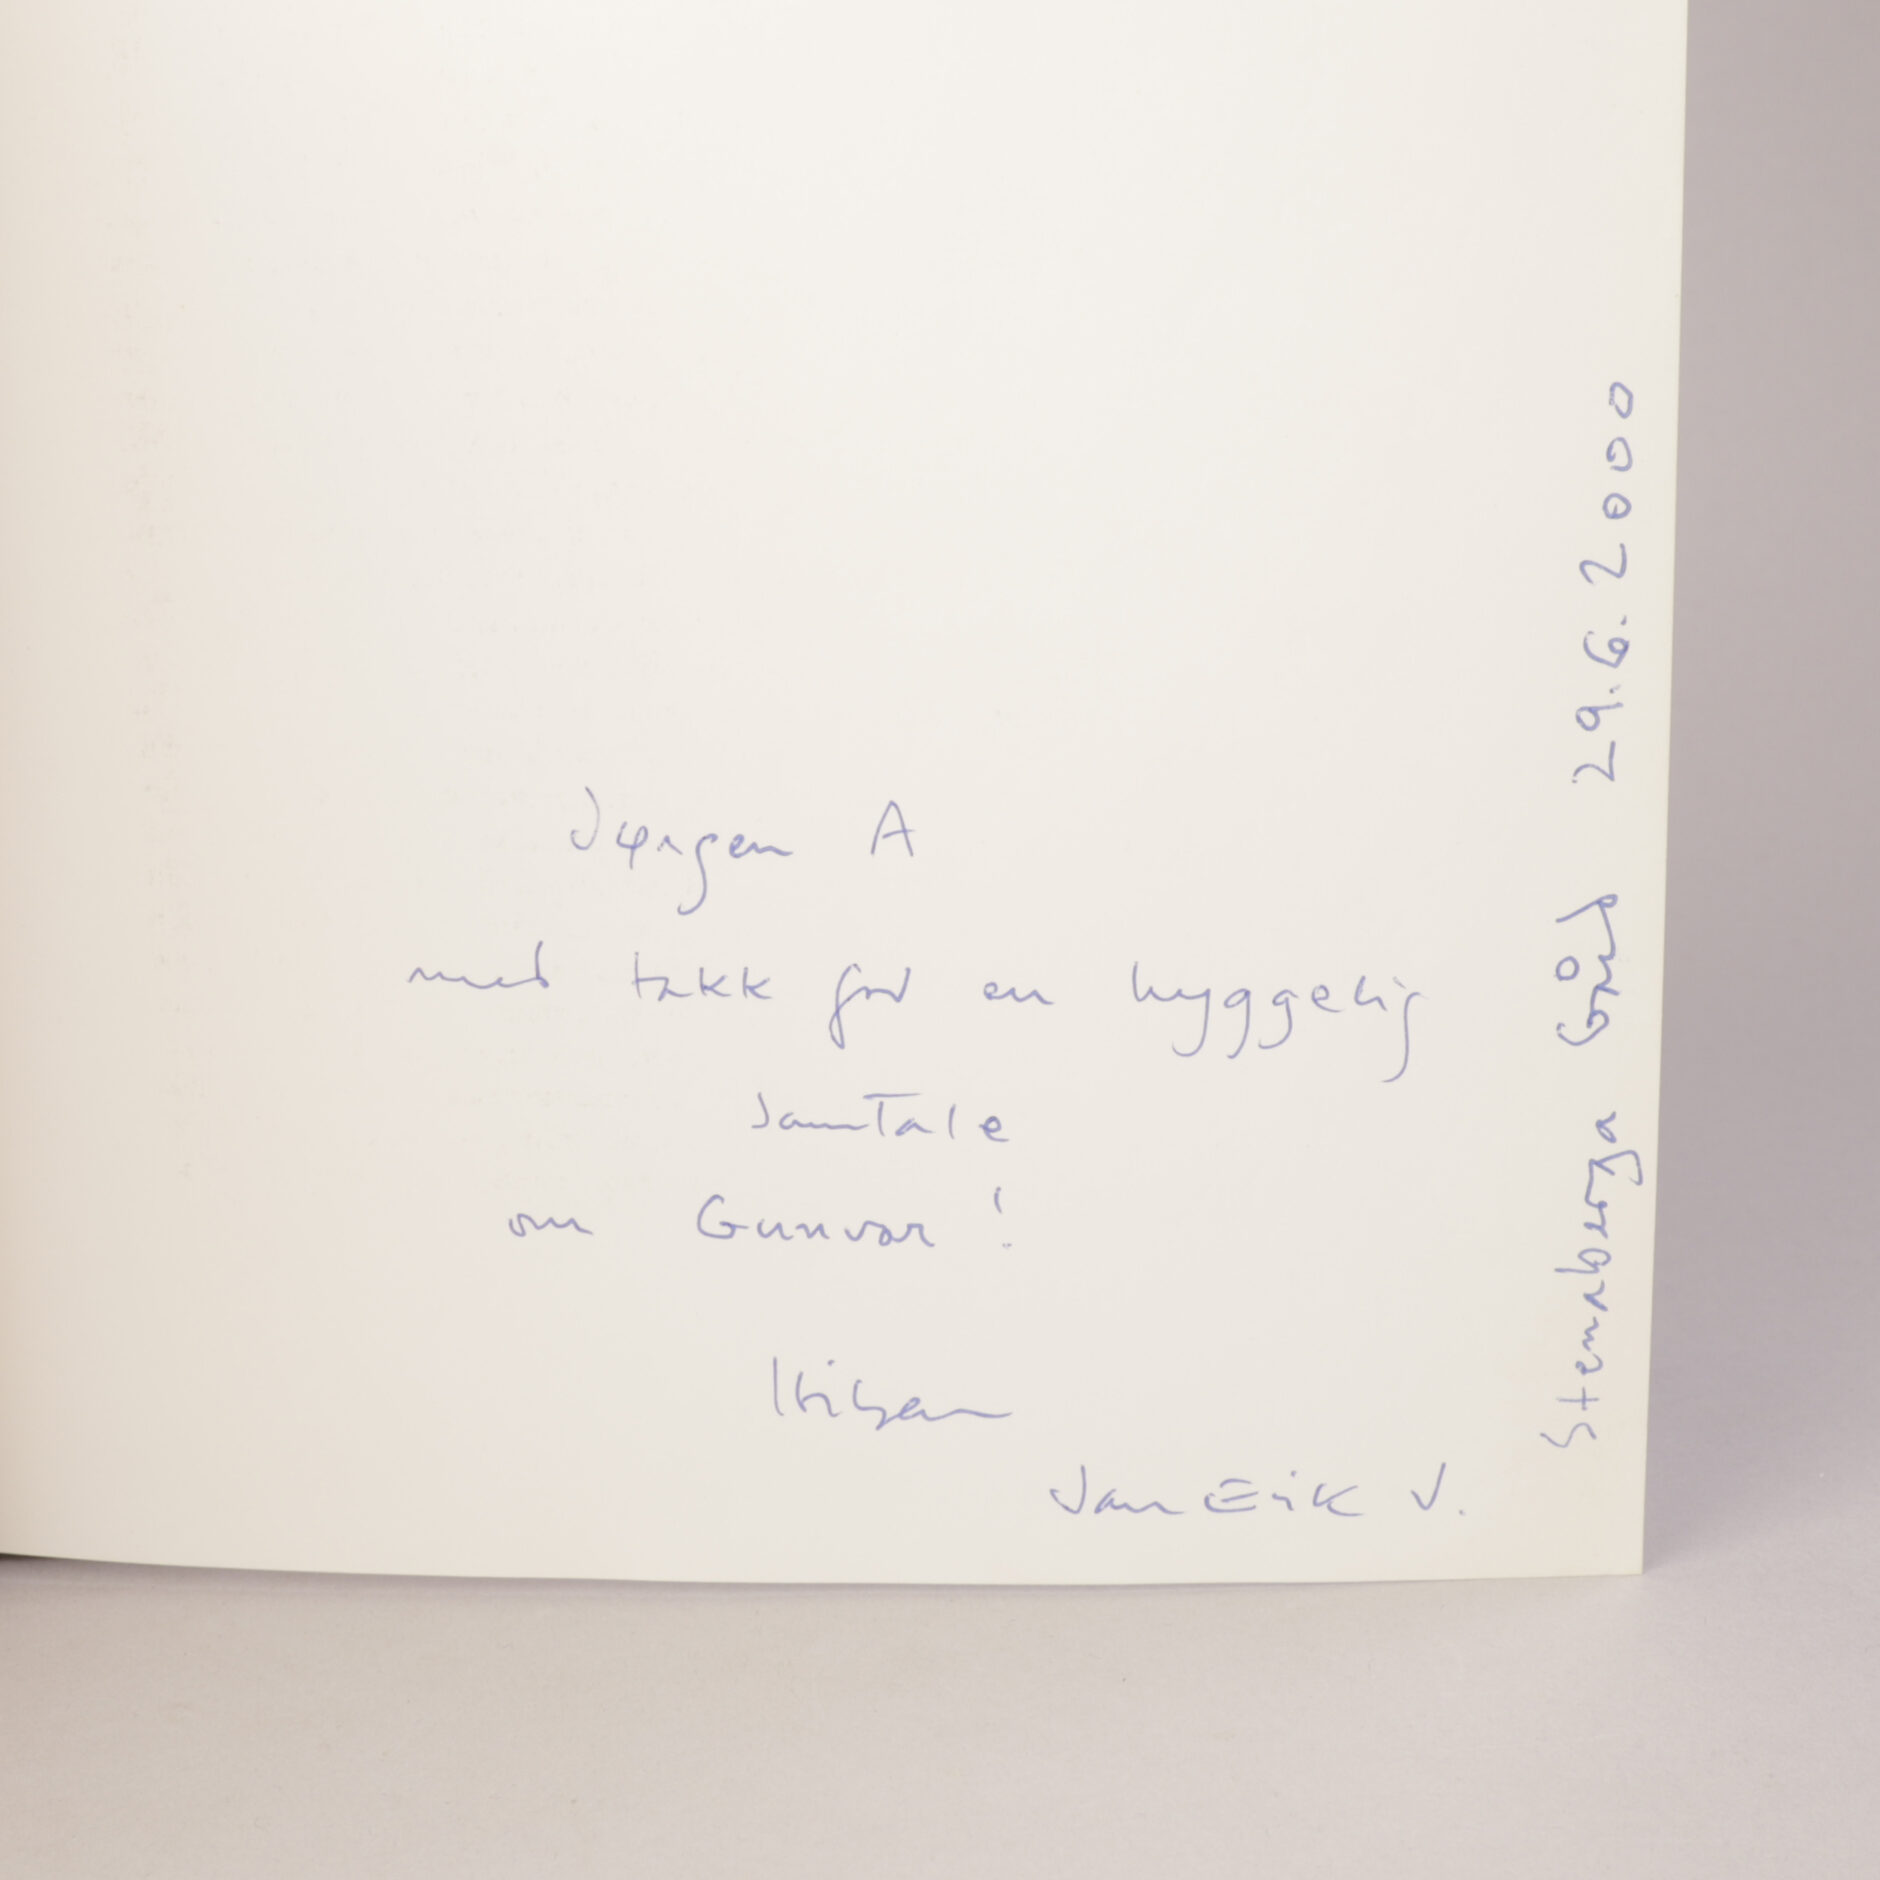 Jørgen A
med takk for en hyggelig
samtale
om Gunvor!
Hilsen
Jan Erik V.
Stenberga Gård 29.6.2000